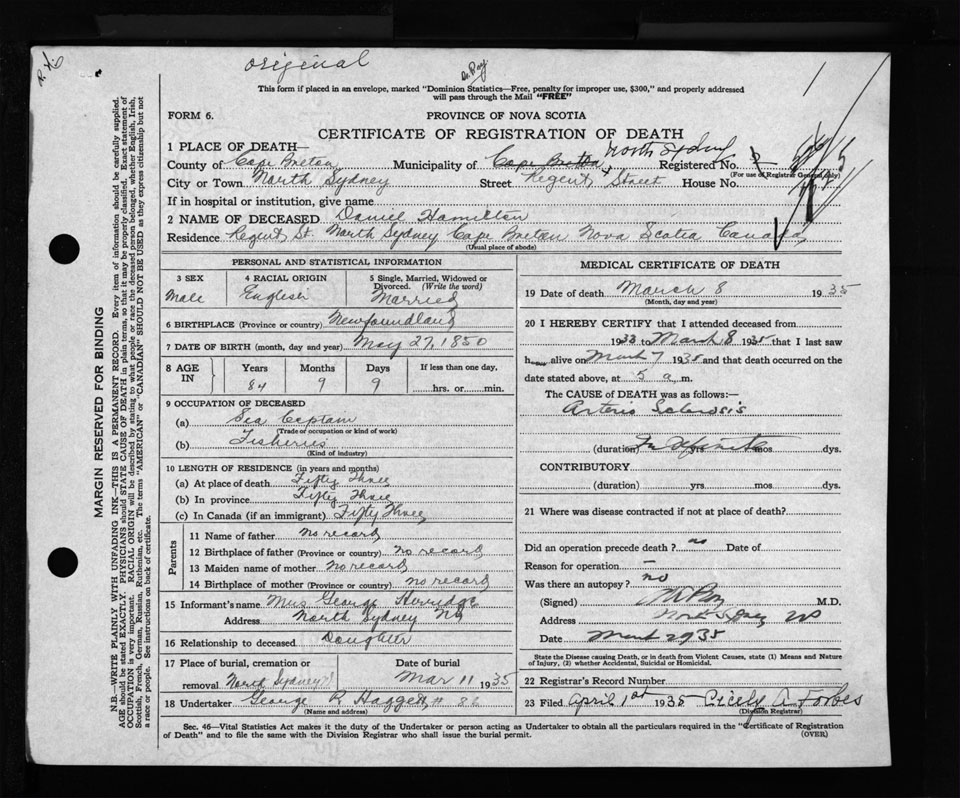 original
Dr. Roy
This form if placed in an envelope, marked "Dominion Statistics—Free, penalty for improper use, $300," and properly addressed
will pass through the Mail "FREE"
FORM 6.
PROVINCE OF NOVA SCOTIA
CERTIFICATE OF REGISTRATION OF DEATH
1 PLACE OF DEATH—
County of Cape Breton Municipality of Cape Breton North Sydney Registered No.
(For use of Registrar General only)
City or Town North Sydney Street Regent Street House No.
If in hospital or institution, give name
2 NAME OF DECEASED Daniel Hamilton
Residence Regent St. North Sydney Cape Breton Nova Scotia Canada,
(Usual place of abode)
PERSONAL AND STATISTICAL INFORMATION
3 SEX Male
4 RACIAL ORIGIN English
5 Single, Married, Widowed or Divorced. (Write the word) Married
6 BIRTHPLACE (Province or country) Newfoundland
7 DATE OF BIRTH (month, day and year) May 27, 1850
8 AGE IN Years Months Days If less than one day,
84 9 9 hrs. or min.
9 OCCUPATION OF DECEASED
(a) Sea Captain
(Trade or occupation or kind of work)
(b) Fisheries
(Kind of industry)
10 LENGTH OF RESIDENCE (in years and months)
(a) At place of death Fifty Three
(b) In province Fifty Three
(c) In Canada (if an immigrant) Fifty Three
Parents
11 Name of father no record
12 Birthplace of father (Province or country) no record
13 Maiden name of mother no record
14 Birthplace of mother (Province or country) no record
15 Informant's name Mrs George
Address North Sydney NS
16 Relationship to deceased Daughter
17 Place of burial, cremation or Date of burial
removal North Sydney Mar 11 1935
18 Undertaker George R Haggett
(Name and address)
MEDICAL CERTIFICATE OF DEATH
19 Date of death March 8 1935
(Month, day and year)
20 I HEREBY CERTIFY that I attended deceased from
1933 to March 8 1935 that I last saw
h alive on March 7 1935 and that death occurred on the
date stated above, at 5 a m.
The CAUSE OF DEATH was as follows:—
Arterio Sclerosis
(duration) Indefinite yrs mos dys.
CONTRIBUTORY
(duration) yrs mos dys.
21 Where was disease contracted if not at place of death?
Did an operation precede death? no Date of
Reason for operation —
Was there an autopsy? no
(Signed) Roy M.D.
Address North Sydney
Date March 1935
State the Disease causing Death, or in death from Violent Causes, state (1) Means and Nature
of Injury, (2) whether Accidental, Suicidal or Homicidal.
22 Registrar's Record Number
23 Filed April 1st 1935 Cicily A Forbes
(Division Registrar)
Sec. 46—Vital Statistics Act makes it the duty of the Undertaker or person acting as Undertaker to obtain all the particulars required in the "Certificate of Registration
of Death" and to file the same with the Division Registrar who shall issue the burial permit.
(OVER)
MARGIN RESERVED FOR BINDING
N.B.—WRITE PLAINLY WITH UNFADING INK—THIS IS A PERMANENT RECORD. Every item of information should be carefully supplied.
AGE should be stated EXACTLY. PHYSICIANS should STATE CAUSE OF DEATH in plain terms, so that it may be properly classified. Exact statement of
OCCUPATION is very important. RACIAL ORIGIN will be described by stating to what people or race the deceased person belonged, whether English, Irish,
Scottish, French, German, Russian, Ruthenian, etc. The terms "AMERICAN" or "CANADIAN" SHOULD NOT BE USED as they express citizenship but not
a race or people. See instructions on back of certificate.